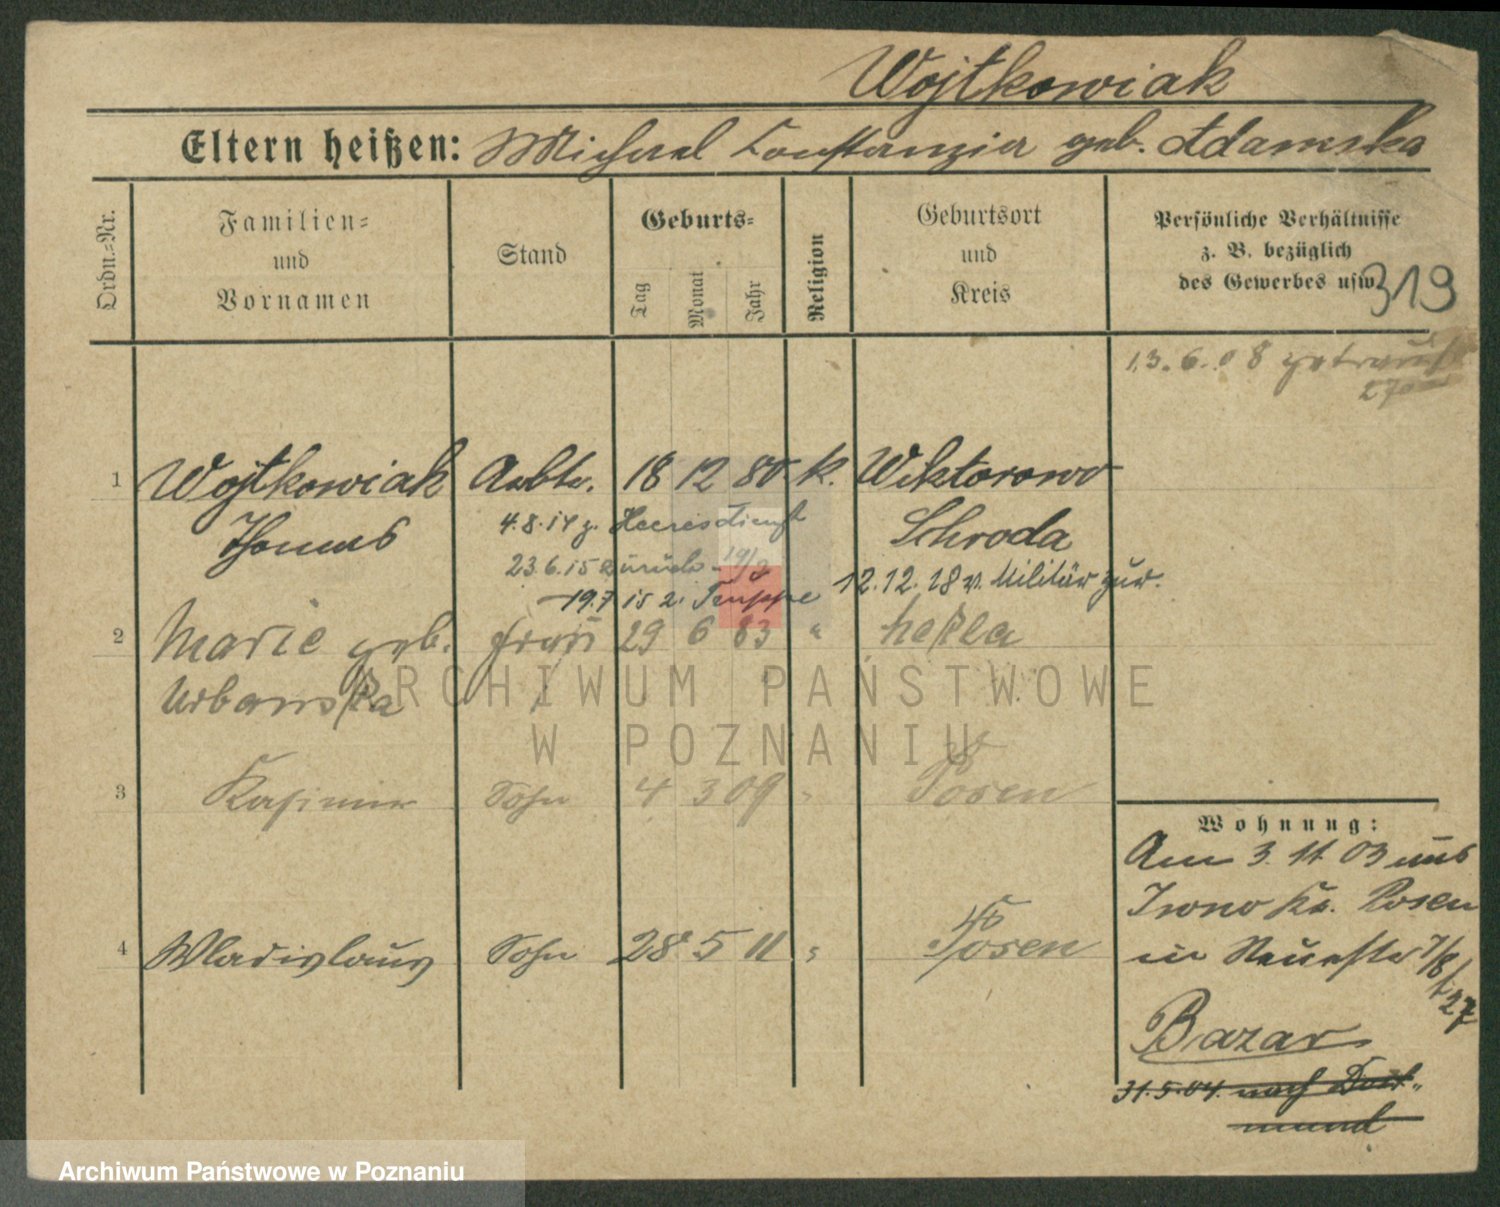 Wojtkowiak
Eltern heißen: Michael Constanzia geb. Adamska
Ordn.-Nr.
Familien-
und
Vornamen
Stand
Geburts-
Tag
Monat
Jahr
Religion
Geburtsort
und
Kreis
Persönliche Verhältnisse
z. B. bezüglich
des Gewerbes usw.
319
13.6.08 getraut
1 Wojtkowiak Arbtr. 18 12 80 k. Wiktorowo
Thomas Schroda
4.8.14 z. Heeresdienst
23.6.15 zurück
19.7 15 z. Truppe 12.12.18 v. Militär zur.
2 Marie geb. Frau 29 6 83 "
Urbanska
3 Kasimir Sohn 4 3 09 " Posen
4 Wladislaus Sohn 28 5 11 " Posen
Wohnung:
Am 3. 11 03 aus
Iwno Kr. Posen
in
Bazar
31.5.04. nach Dort-
mund
ARCHIWUM PAŃSTWOWE
W POZNANIU
Archiwum Państwowe w Poznaniu